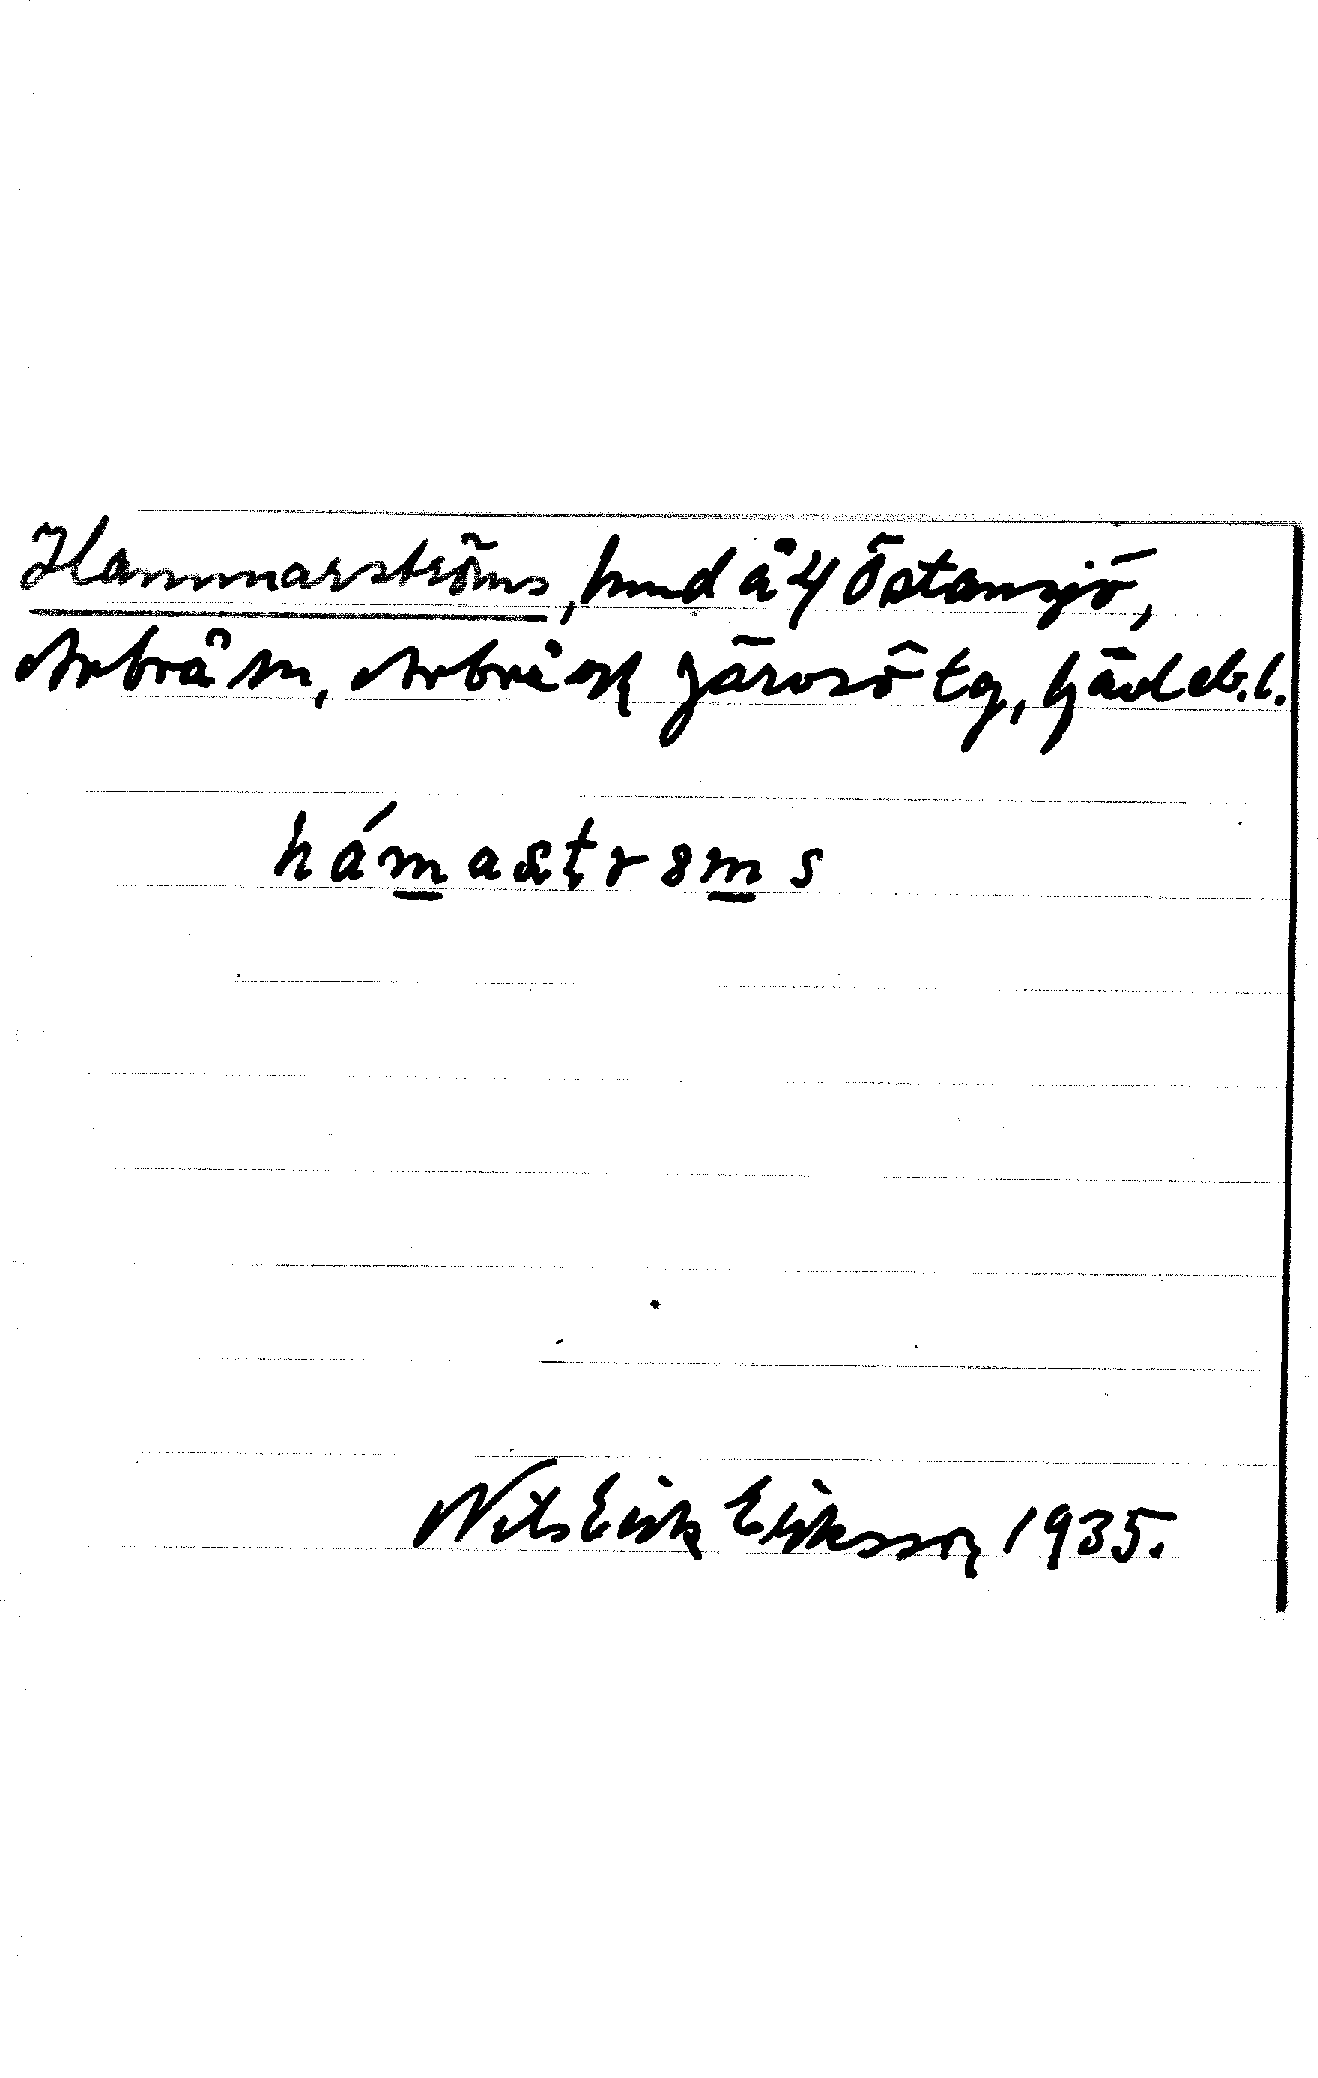 Hammarströms, hmd å 4 Östansjö,
Arbrå sn, Arbrå ok Järvsö tg, Gävleb. l.
hámastrøms
Nils Erik Eriksson 1935.